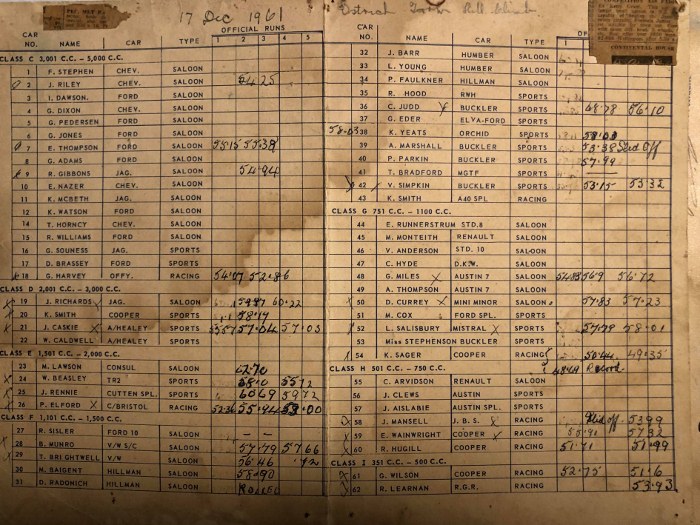 17 Dec 1961
CAR NO. NAME CAR TYPE OFFICIAL RUNS
1 2 3 4 5
CLASS C 3,001 C.C. — 5,000 C.C.
1 F. STEPHEN CHEV. SALOON
2 J. RILEY CHEV. SALOON 54.25
3 I. DAWSON. FORD SALOON
4 G. DIXON CHEV. SALOON
5 G. PEDERSEN FORD SALOON
6 G. JONES FORD SALOON
7 E. THOMPSON FORD SALOON 55.15 55.38
8 G. ADAMS FORD SALOON
9 R. GIBBONS JAG. SALOON 54.94
10 E. NAZER CHEV. SALOON
11 K. MCBETH JAG. SALOON
12 K. WATSON FORD SALOON
14 T. HORNCY CHEV. SALOON
15 R. WILLIAMS FORD SALOON
16 G. SOUNESS JAG. SPORTS
17 D. BRASSEY FORD SPORTS
18 G. HARVEY OFFY. RACING 54.07 52.86
CLASS D 2,001 C.C. — 3,000 C.C.
19 J. RICHARDS X JAG. SALOON 60.22
20 K. SMITH COOPER SPORTS 58.19
21 J. CASKIE X A/HEALEY SPORTS 57.04 57.03
22 W. CALDWELL A/HEALEY SPORTS
CLASS E 1,501 C.C. — 2,000 C.C.
23 M. LAWSON CONSUL SALOON 62.70
24 W. BEASLEY TR2 SPORTS 58.0 55.12
25 J. RENNIE CUTTEN SPL. SPORTS 60.69 59.72
26 P. ELFORD X C/BRISTOL RACING 52.36 55.94 53.00
CLASS F 1,101 C.C. — 1,500 C.C.
27 R. SISLER FORD 10 SALOON — —
28 B. MUNRO V/W S/C SALOON 57.79 57.66
29 T. BRIGHTWELL V/W SALOON 56.46
30 M. BAIGENT HILLMAN SALOON 58.90
31 D. RADONICH HILLMAN SALOON ROLLED
CAR NO. NAME CAR TYPE
32 J. BARR HUMBER SALOON
33 L. YOUNG HUMBER SALOON
34 P. FAULKNER HILLMAN SALOON
35 R. HOOD RWH SPORTS
36 C. JUDD BUCKLER SPORTS 68.78 56.10
37 G. EDER ELVA-FORD SPORTS
58.03 38 K. YEATS ORCHID SPORTS 58.03
39 A. MARSHALL BUCKLER SPORTS 55.38 Slid Off
40 P. PARKIN BUCKLER SPORTS 57.99
41 T. BRADFORD MGTF SPORTS
42 V. SIMPKIN BUCKLER SPORTS 53.15 53.32
43 K. SMITH A40 SPL RACING
CLASS G 751 C.C. — 1100 C.C.
44 E. RUNNERSTRUM STD.8 SALOON
45 M. MONTEITH RENAULT SALOON
46 V. ANDERSON STD. 10 SALOON
47 C. HYDE D.K.W. SALOON
48 G. MILES X AUSTIN 7 SALOON 56.72
49 A. THOMPSON AUSTIN 7 SALOON
50 D. CURREY X MINI MINOR SALOON 57.83 57.23
51 M. COX FORD SPL. SPORTS
52 L. SALISBURY MISTRAL X SPORTS 57.78 58.01
53 Miss STEPHENSON BUCKLER SPORTS
54 K. SAGER COOPER RACING 50.44 49.35
CLASS H 501 C.C. — 750 C.C. 48.49 Record
55 C. ARVIDSON RENAULT SALOON
56 J. CLEWS AUSTIN SPORTS
57 J. AISLABIE AUSTIN SPL. SPORTS
58 J. MANSELL J. B. S. X RACING Slid off 53.99
59 E. WAINWRIGHT COOPER X RACING 57.32
60 R. HUGILL COOPER RACING 51.71 51.99
CLASS I 351 C.C. — 500 C.C.
61 G. WILSON COOPER RACING 52.75 51.6
62 R. LEARNAN R.G.R. RACING 53.93